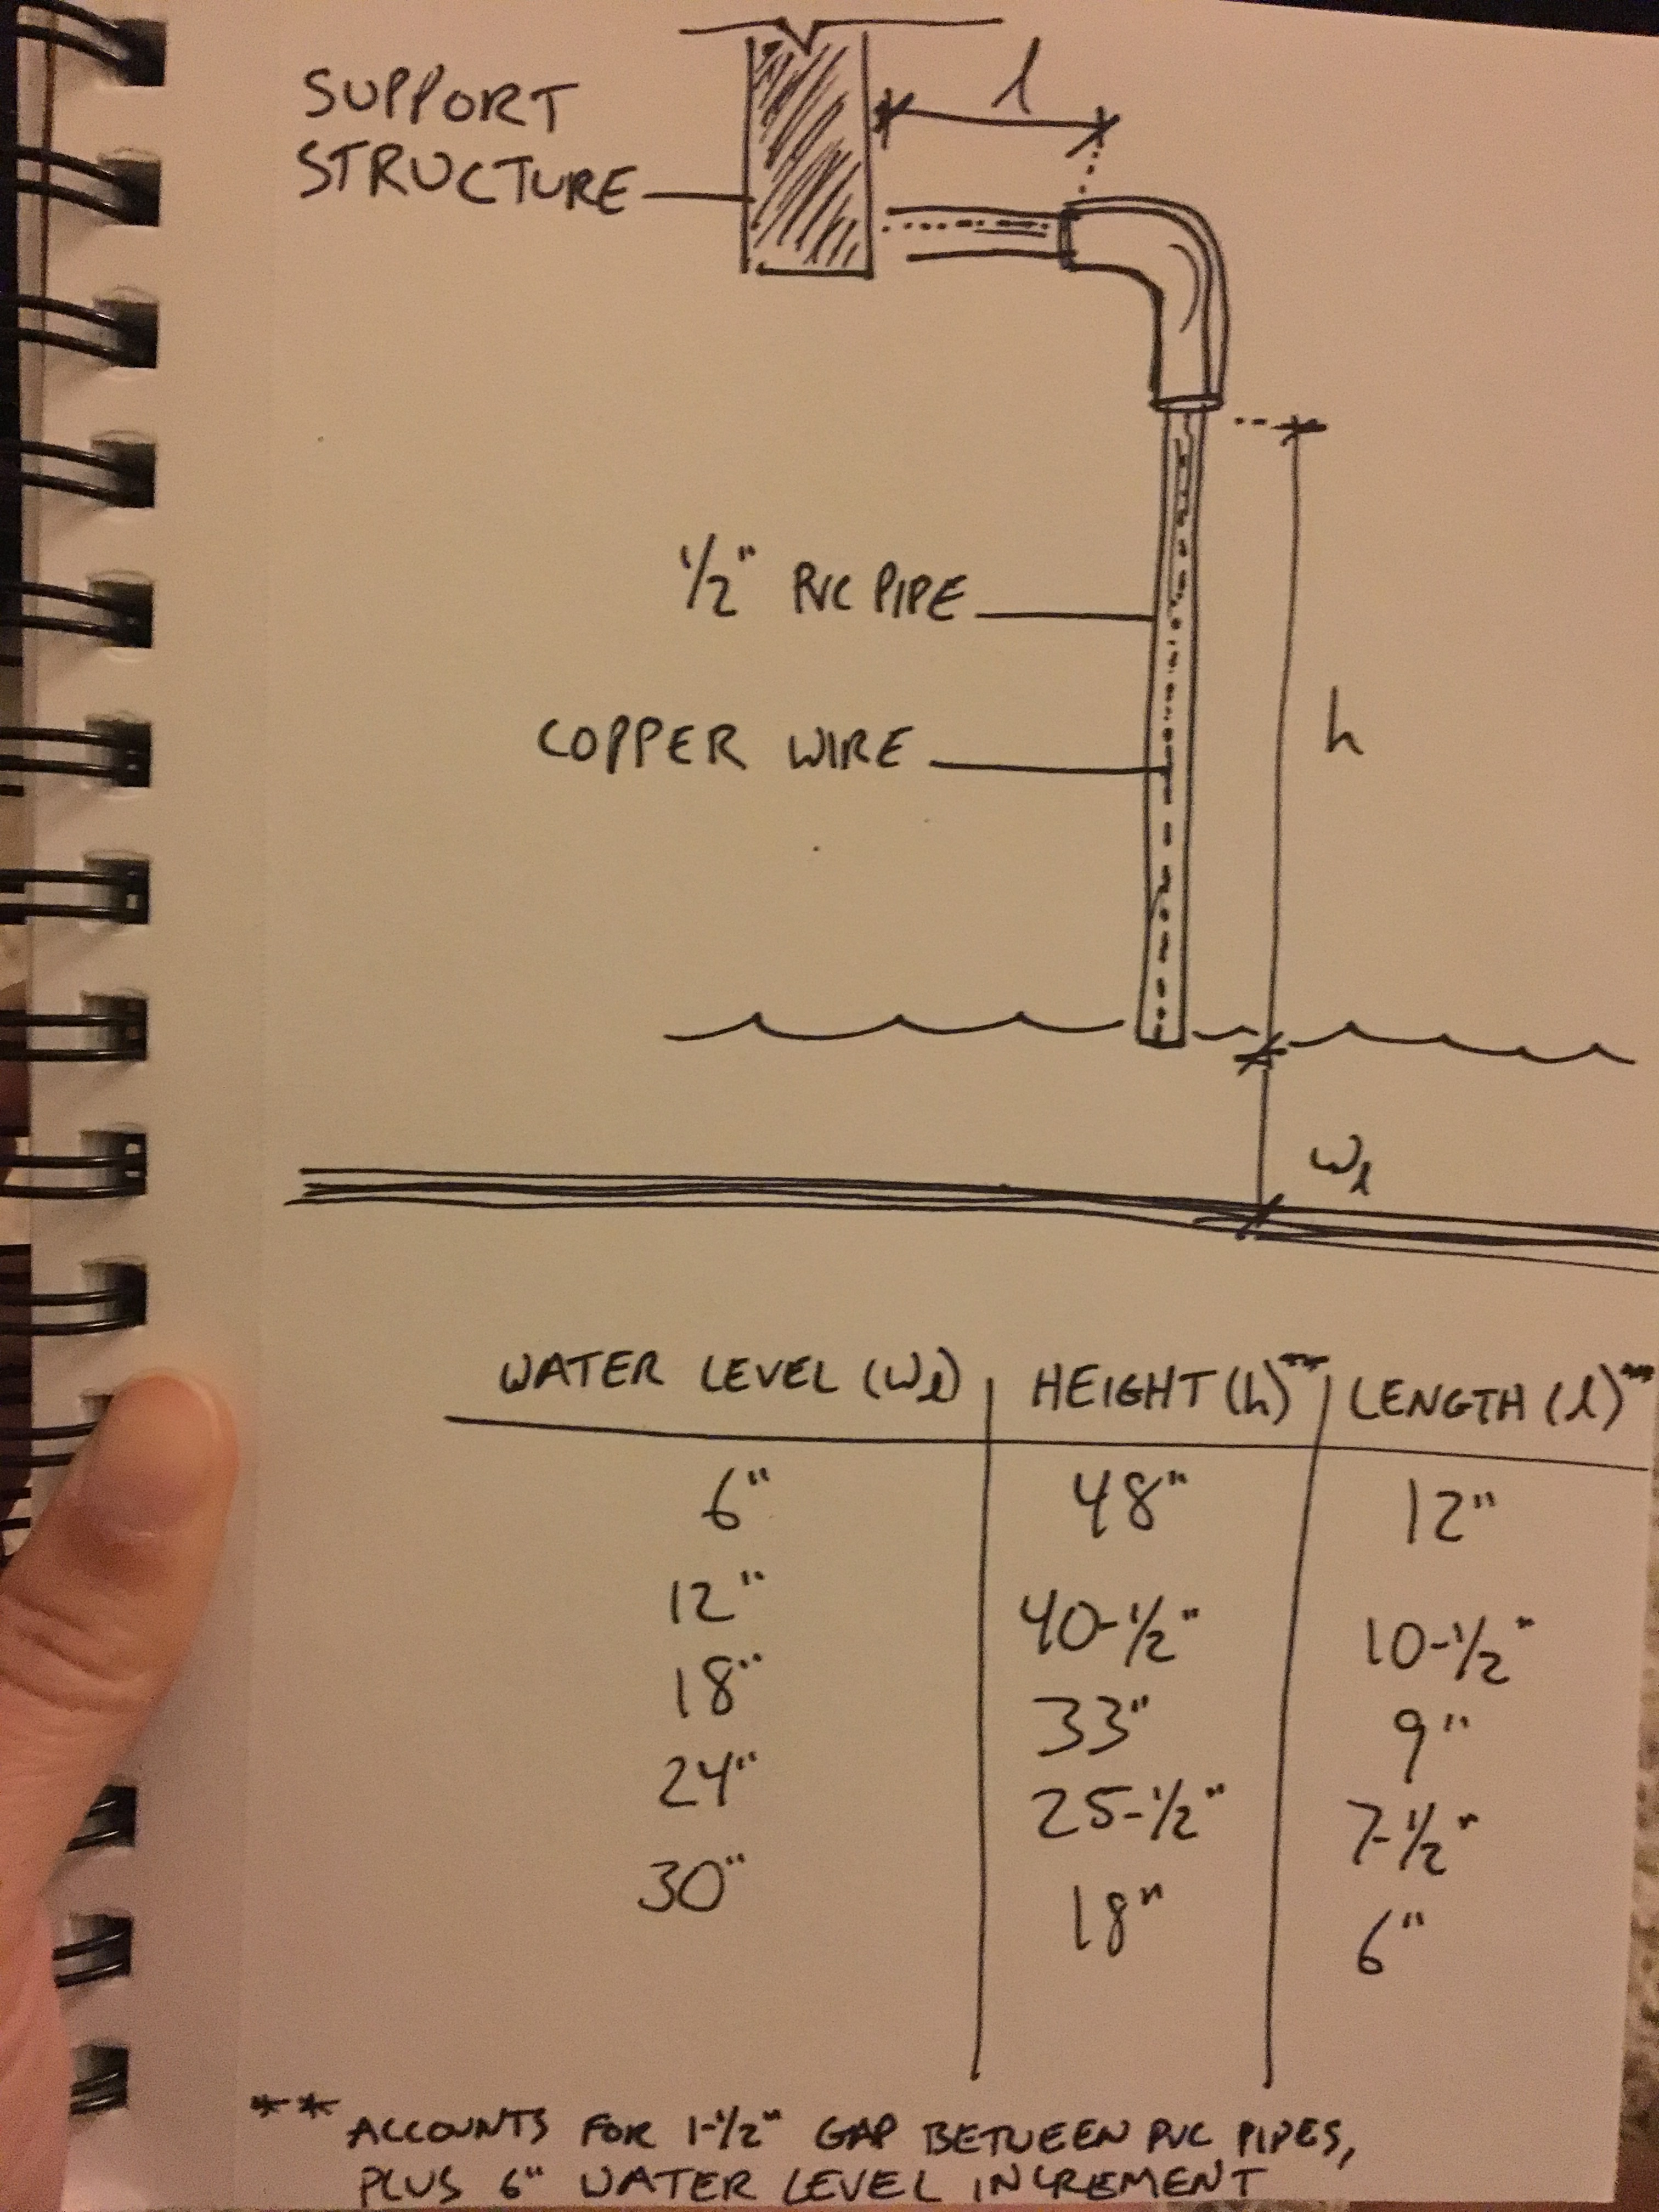 SUPPORT
STRUCTURE
l
1/2" PVC PIPE
COPPER WIRE
h
Wl
WATER LEVEL (Wl) HEIGHT (h)** LENGTH (l)**
6" 48" 12"
12" 40-1/2" 10-1/2"
18" 33" 9"
24" 25-1/2" 7-1/2"
30" 18" 6"
** ACCOUNTS FOR 1-1/2" GAP BETWEEN PVC PIPES,
PLUS 6" WATER LEVEL INCREMENT